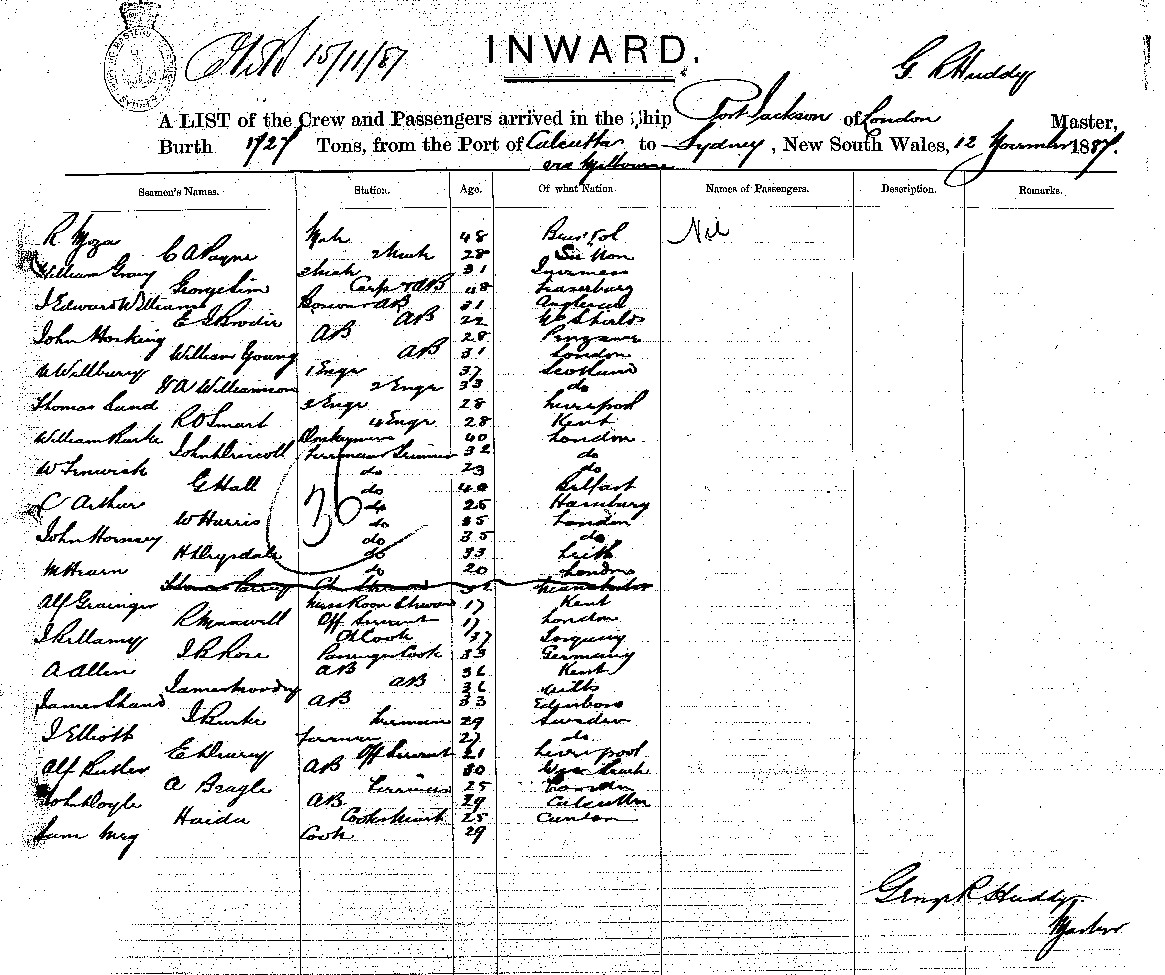 15/11/87
INWARD.
G R Huddy
A LIST of the Crew and Passengers arrived in the Ship Port Jackson of London Master,
Burth 1727 Tons, from the Port of Calcutta to Sydney, New South Wales, 12 November 1887.
via Melbourne
Seamen's Names. Station. Age. Of what Nation. Names of Passengers. Description. Remarks.
R Mate 48 Bristol Nil
C A Payne 2 Mate 28
William Gray 3 Mate 31 Inverness
George Sim Carp & AB 48 Fraserburg
J Edward Williams Bosun & AB 31 Anglesea
E J Brodie AB 22 Nth Shields
John Hosking AB 28 Penzance
William Young AB 31 London
W Willburry 1 Engr 37 Scotland
Williamson 2 Engr 33 do
Thomas Lund 3 Engr 28 Liverpool
R O Smart 4 Engr 28 Kent
William Burke Donkeyman 40 London
John Driscoll Fireman Trimmer 32 do
W Fenwick do 23 do
G Hall do 40 Belfast
C Arthur do 25 Hamburg
W Harris do 35 London
John Hornsey do 35 do
H Drysdale do 33 Leith
M Hearn do 20 London
36
Thomas Ch Steward Manchester
Alf Grainger Mess Room Steward 17 Kent
R Off Servant 17 London
J Bellamy Ch Cook 37 Torquay
J B Rose Passenger Cook 33 Germany
A Allen AB 36 Kent
James AB 36 Wilts
James Shand AB 33
J Burke Fireman 29 Sweden
J Elliott Fireman 27 do
E Off Servant 21 Liverpool
Alf Butler AB 30
A Beagle 25 London
John Doyle AB 29 Calcutta
Haida Cooks Mate 25 Canton
Sam Cook 29
George R Huddy
Master